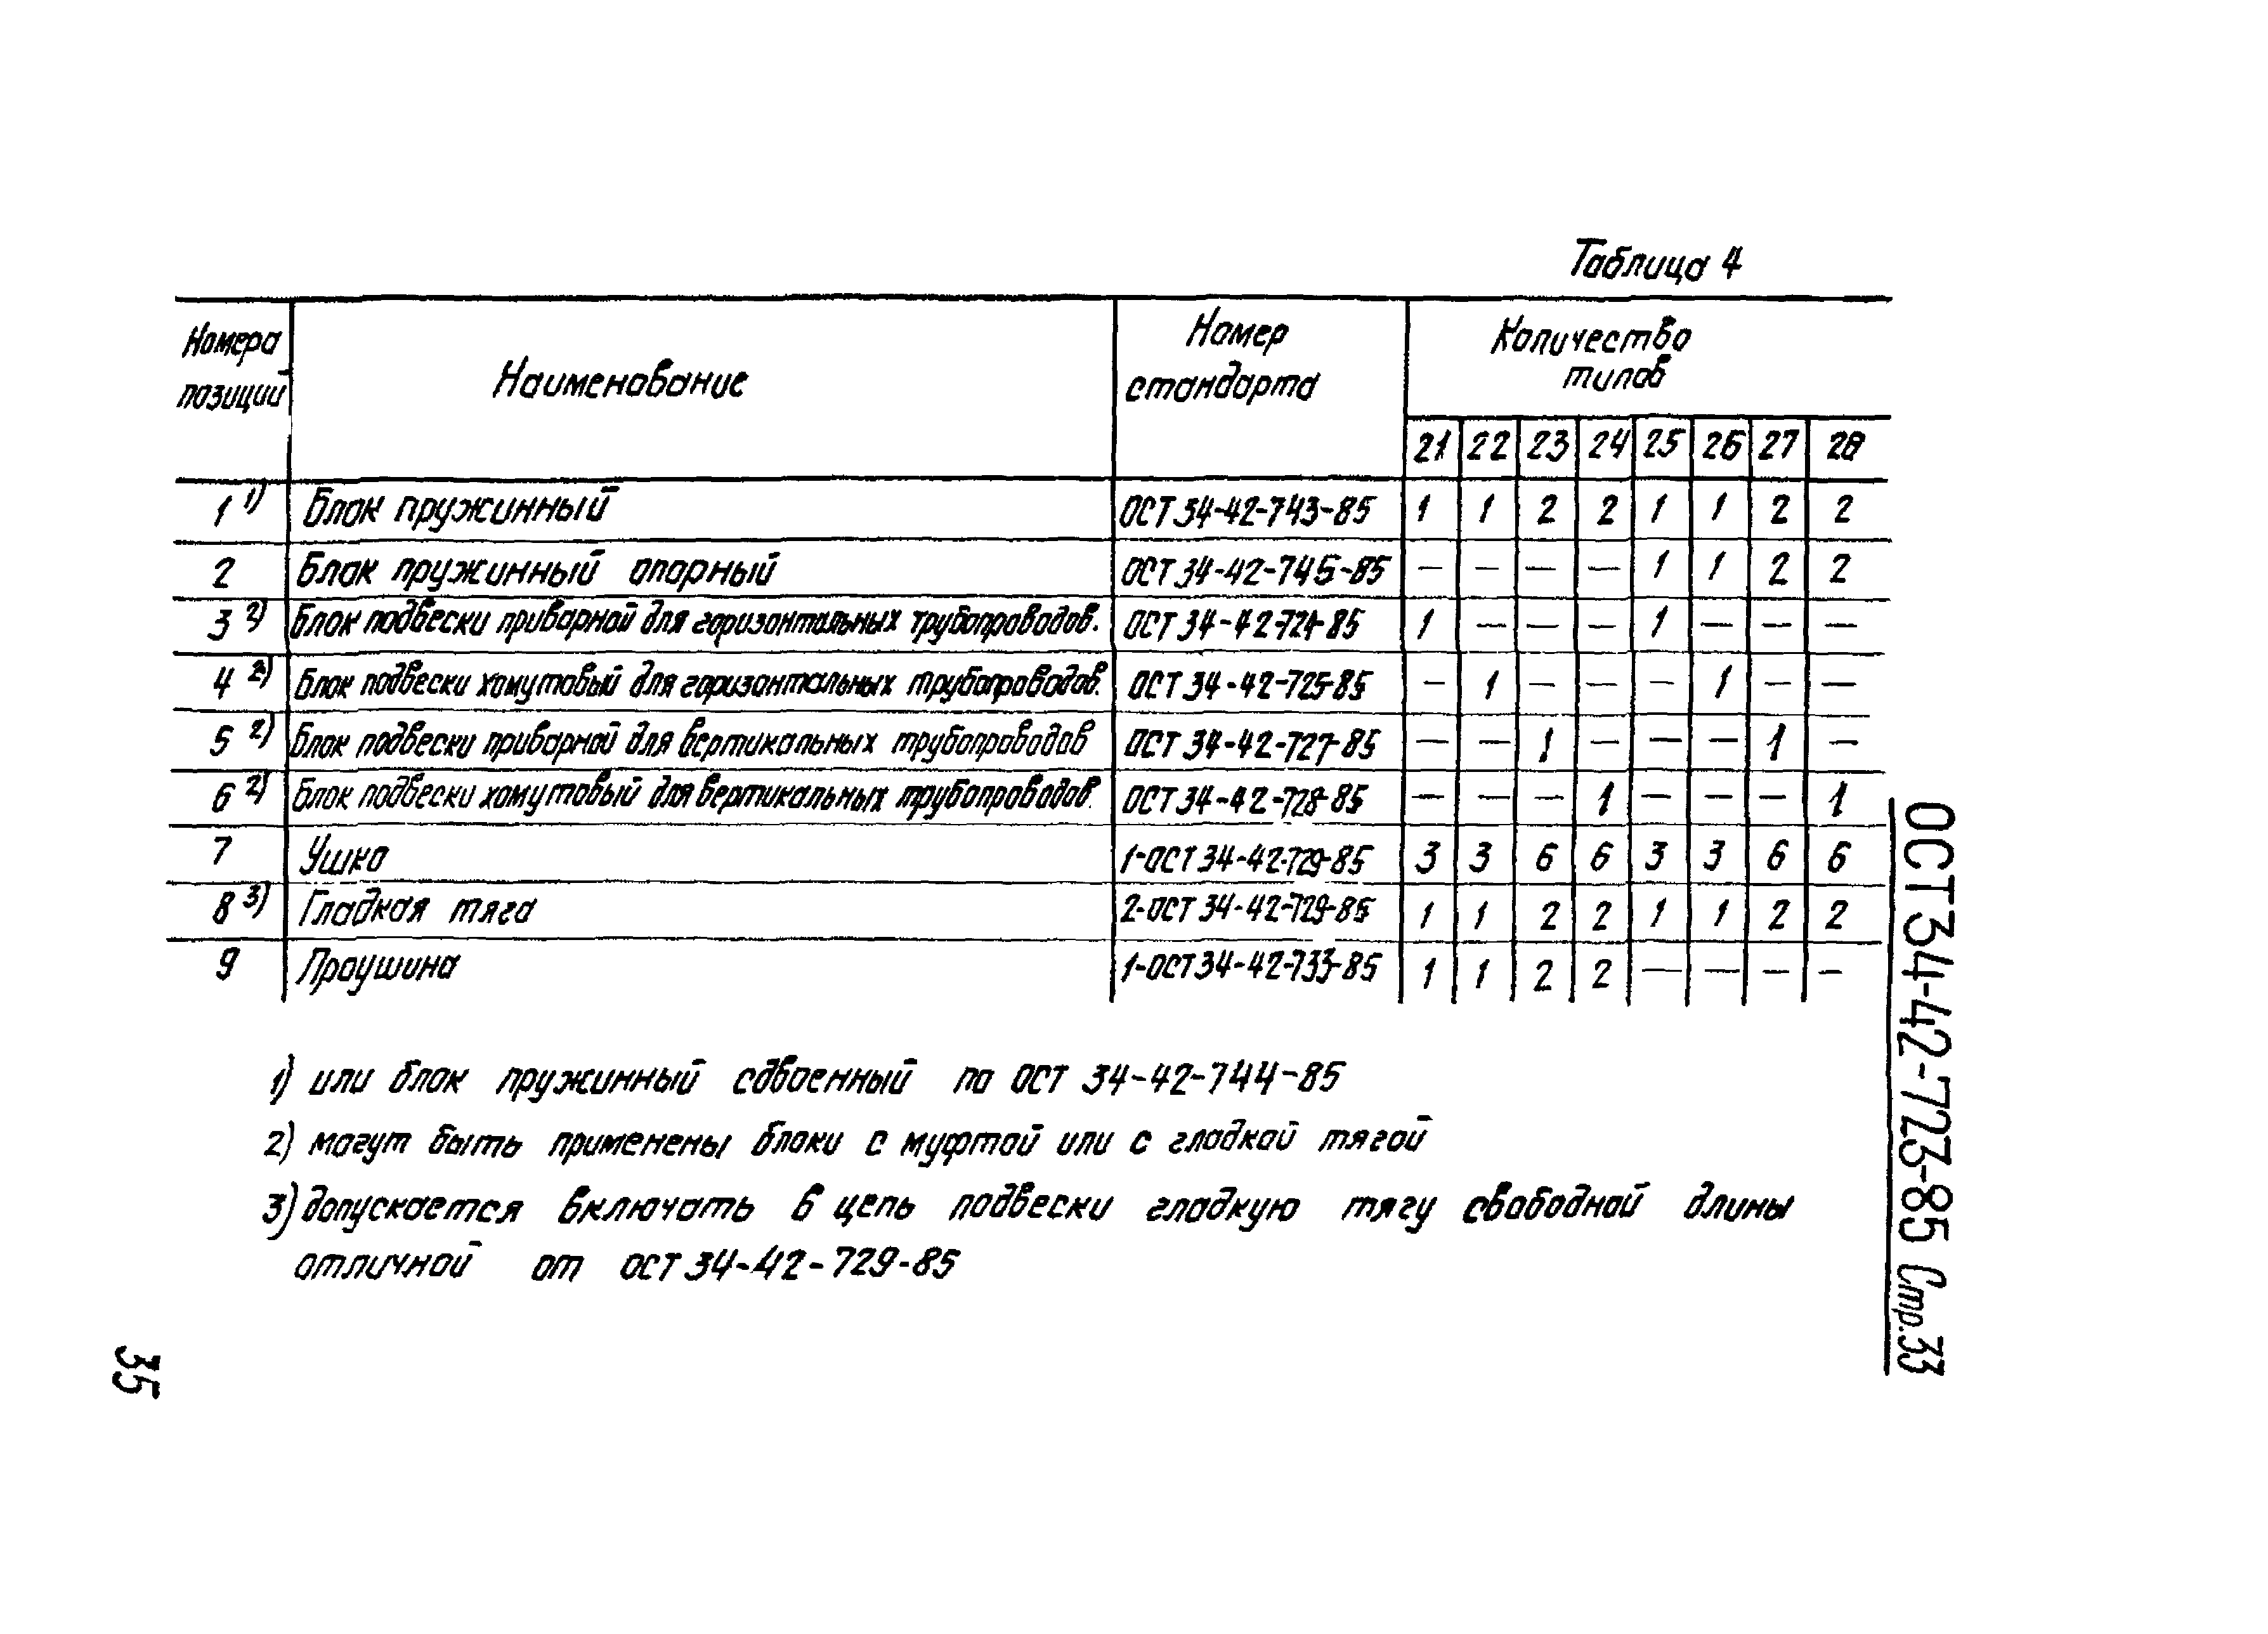 Таблица 4
Номера позиций | Наименование | Номер стандарта | Количество типов
21 | 22 | 23 | 24 | 25 | 26 | 27 | 28
1 1) | Блок пружинный | ОСТ 34-42-743-85 | 1 | 1 | 2 | 2 | 1 | 1 | 2 | 2
2 | Блок пружинный опорный | ОСТ 34-42-745-85 | — | — | — | — | 1 | 1 | 2 | 2
3 2) | Блок подвески приварной для горизонтальных трубопроводов. | ОСТ 34-42-724-85 | 1 | — | — | — | 1 | — | — | —
4 2) | Блок подвески хомутовый для горизонтальных трубопроводов. | ОСТ 34-42-725-85 | — | 1 | — | — | — | 1 | — | —
5 2) | Блок подвески приварной для вертикальных трубопроводов | ОСТ 34-42-727-85 | — | — | 1 | — | — | — | 1 | —
6 2) | Блок подвески хомутовый для вертикальных трубопроводов. | ОСТ 34-42-728-85 | — | — | — | 1 | — | — | — | 1
7 | Ушко | 1-ОСТ 34-42-729-85 | 3 | 3 | 6 | 6 | 3 | 3 | 6 | 6
8 3) | Гладкая тяга | 2-ОСТ 34-42-729-85 | 1 | 1 | 2 | 2 | 1 | 1 | 2 | 2
9 | Проушина | 1-ОСТ 34-42-733-85 | 1 | 1 | 2 | 2 | — | — | — | —
1) или блок пружинный сдвоенный по ОСТ 34-42-744-85
2) могут быть применены блоки с муфтой или с гладкой тягой
3) допускается включать в цепь подвески гладкую тягу свободной длины
отличной от ОСТ 34-42-729-85
ОСТ 34-42-723-85 Стр.33
35